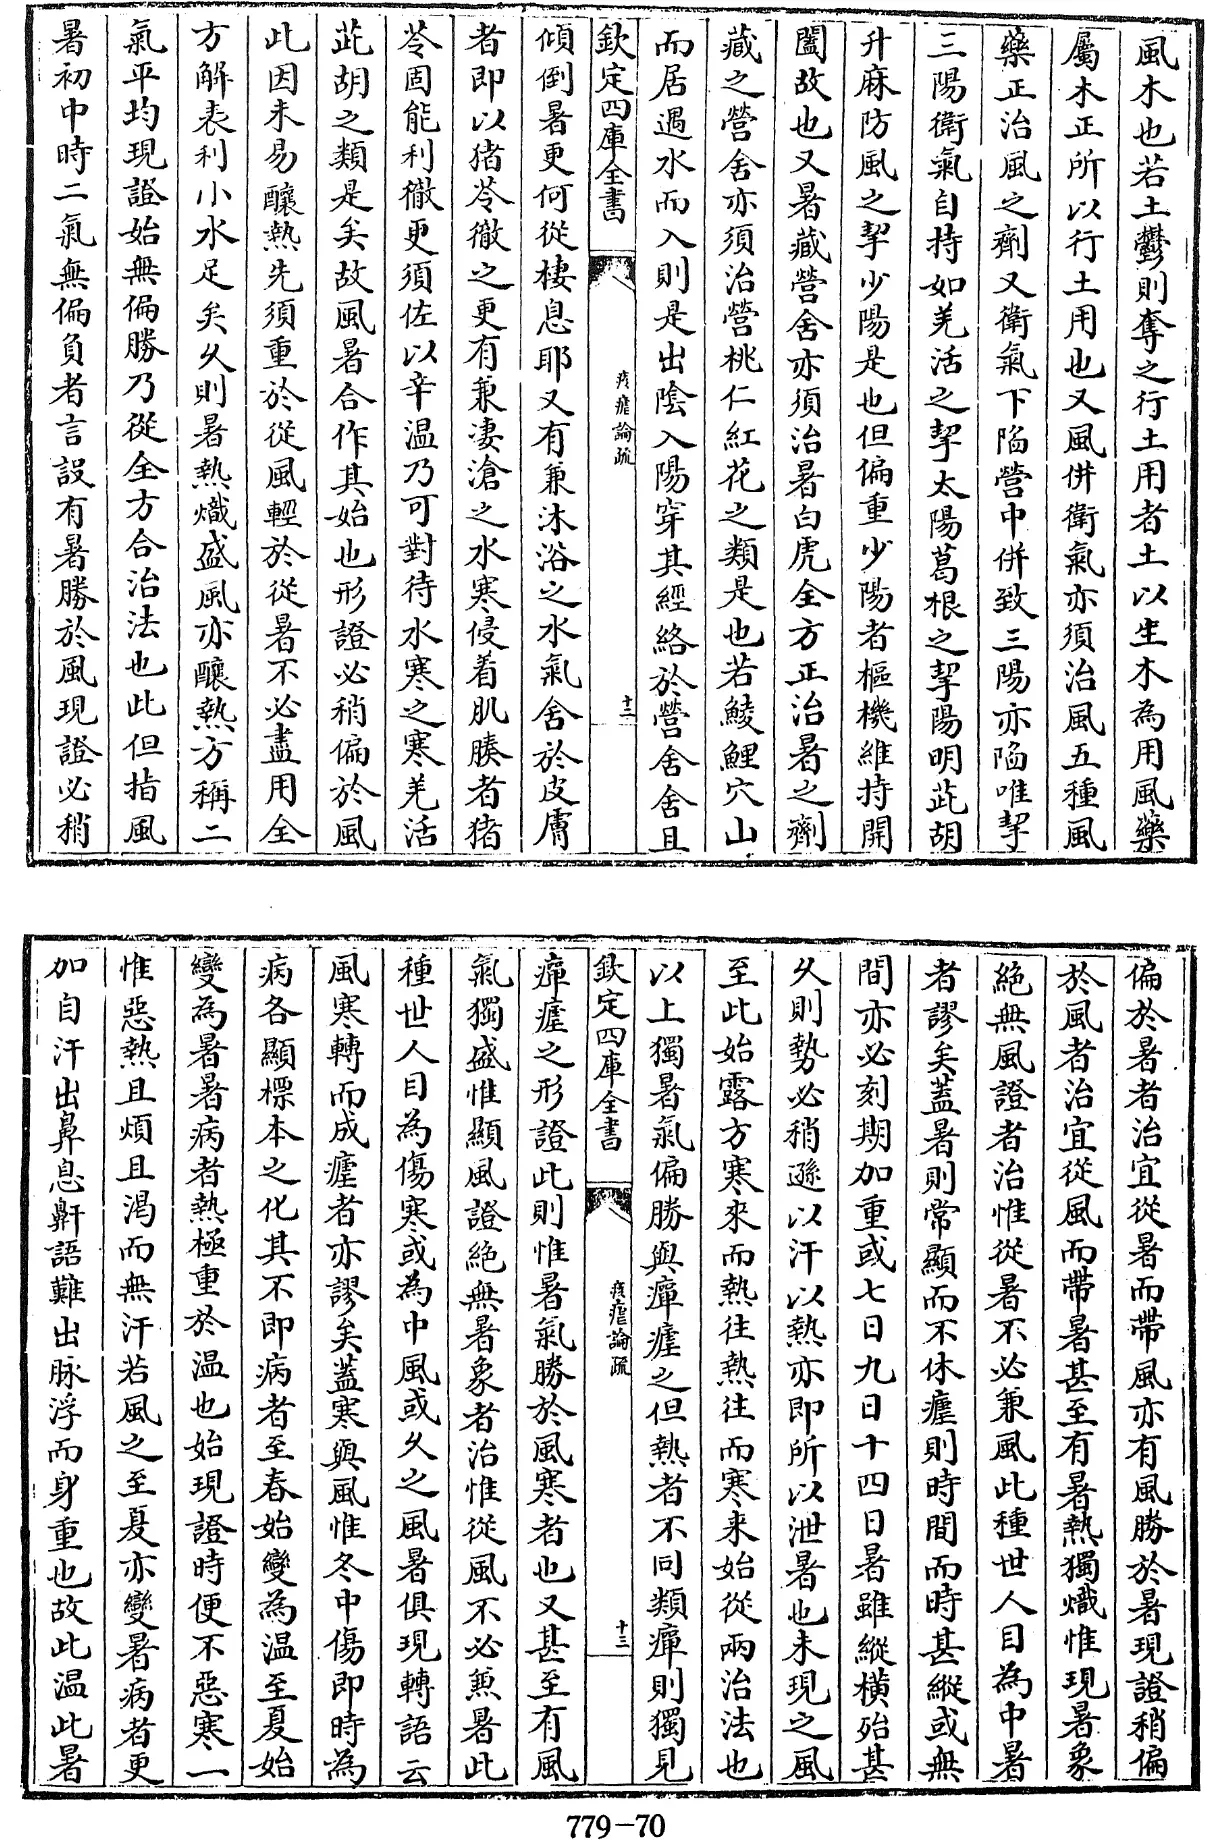 風木也若土鬱則奪之行土用者土以生木為用風藥
屬木正所以行土用也又風併衛氣亦須治風五種風
藥正治風之劑又衛氣下陷營中併致三陽亦陷唯挈
三陽衛氣自持如羌活之挈太陽葛根之挈陽明茈胡
升麻防風之挈少陽是也但偏重少陽者樞機維持開
闔故也又暑藏營舍亦須治暑白虎全方正治暑之劑
藏之營舍亦須治營桃仁紅花之類是也若鯪鯉穴山
而居遇水而入則是出陰入陽穿其經絡於營舍舍且
欽定四庫全書
痎瘧論疏
十二
傾倒暑更何從棲息耶又有兼沐浴之水氣舍於皮膚
者即以猪苓徹之更有兼凄滄之水寒侵着肌腠者猪
苓固能利徹更須佐以辛温乃可對待水寒之寒羌活
茈胡之類是矣故風暑合作其始也形證必稍偏於風
此因未易釀熱先須重於從風輕於從暑不必盡用全
方解表利小水足矣久則暑熱熾盛風亦釀熱方稱二
氣平均現證始無偏勝乃從全方合治法也此但指風
暑初中時二氣無偏負者言設有暑勝於風現證必稍
偏於暑者治宜從暑而帶風亦有風勝於暑現證稍偏
於風者治宜從風而帶暑甚至有暑熱獨熾惟現暑象
絶無風證者治惟從暑不必兼風此種世人目為中暑
者謬矣蓋暑則常顯而不休瘧則時間而時甚縱或無
間亦必刻期加重或七日九日十四日暑雖縱橫殆甚
久則勢必稍遜以汗以熱亦即所以泄暑也未現之風
至此始露方寒來而熱往熱往而寒来始從兩治法也
以上獨暑氣偏勝與癉瘧之但熱者不同類癉則獨見
欽定四庫全書
痎瘧論疏
十三
癉瘧之形證此則惟暑氣勝於風寒者也又甚至有風
氣獨盛惟顯風證絶無暑象者治惟從風不必兼暑此
種世人目為傷寒或為中風或久之風暑俱現轉語云
風寒轉而成瘧者亦謬矣蓋寒與風惟冬中傷即時為
病各顯標本之化其不即病者至春始變為温至夏始
變為暑暑病者熱極重於温也始現證時便不惡寒一
惟惡熱且煩且渴而無汗若風之至夏亦變暑病者更
加自汗出鼻息鼾語難出脉浮而身重也故此温此暑
779-70